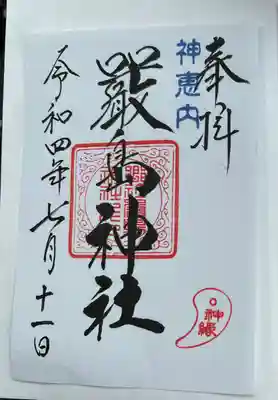 奉拝
神恵内
嚴島神社
令和四年七月十一日
神縁